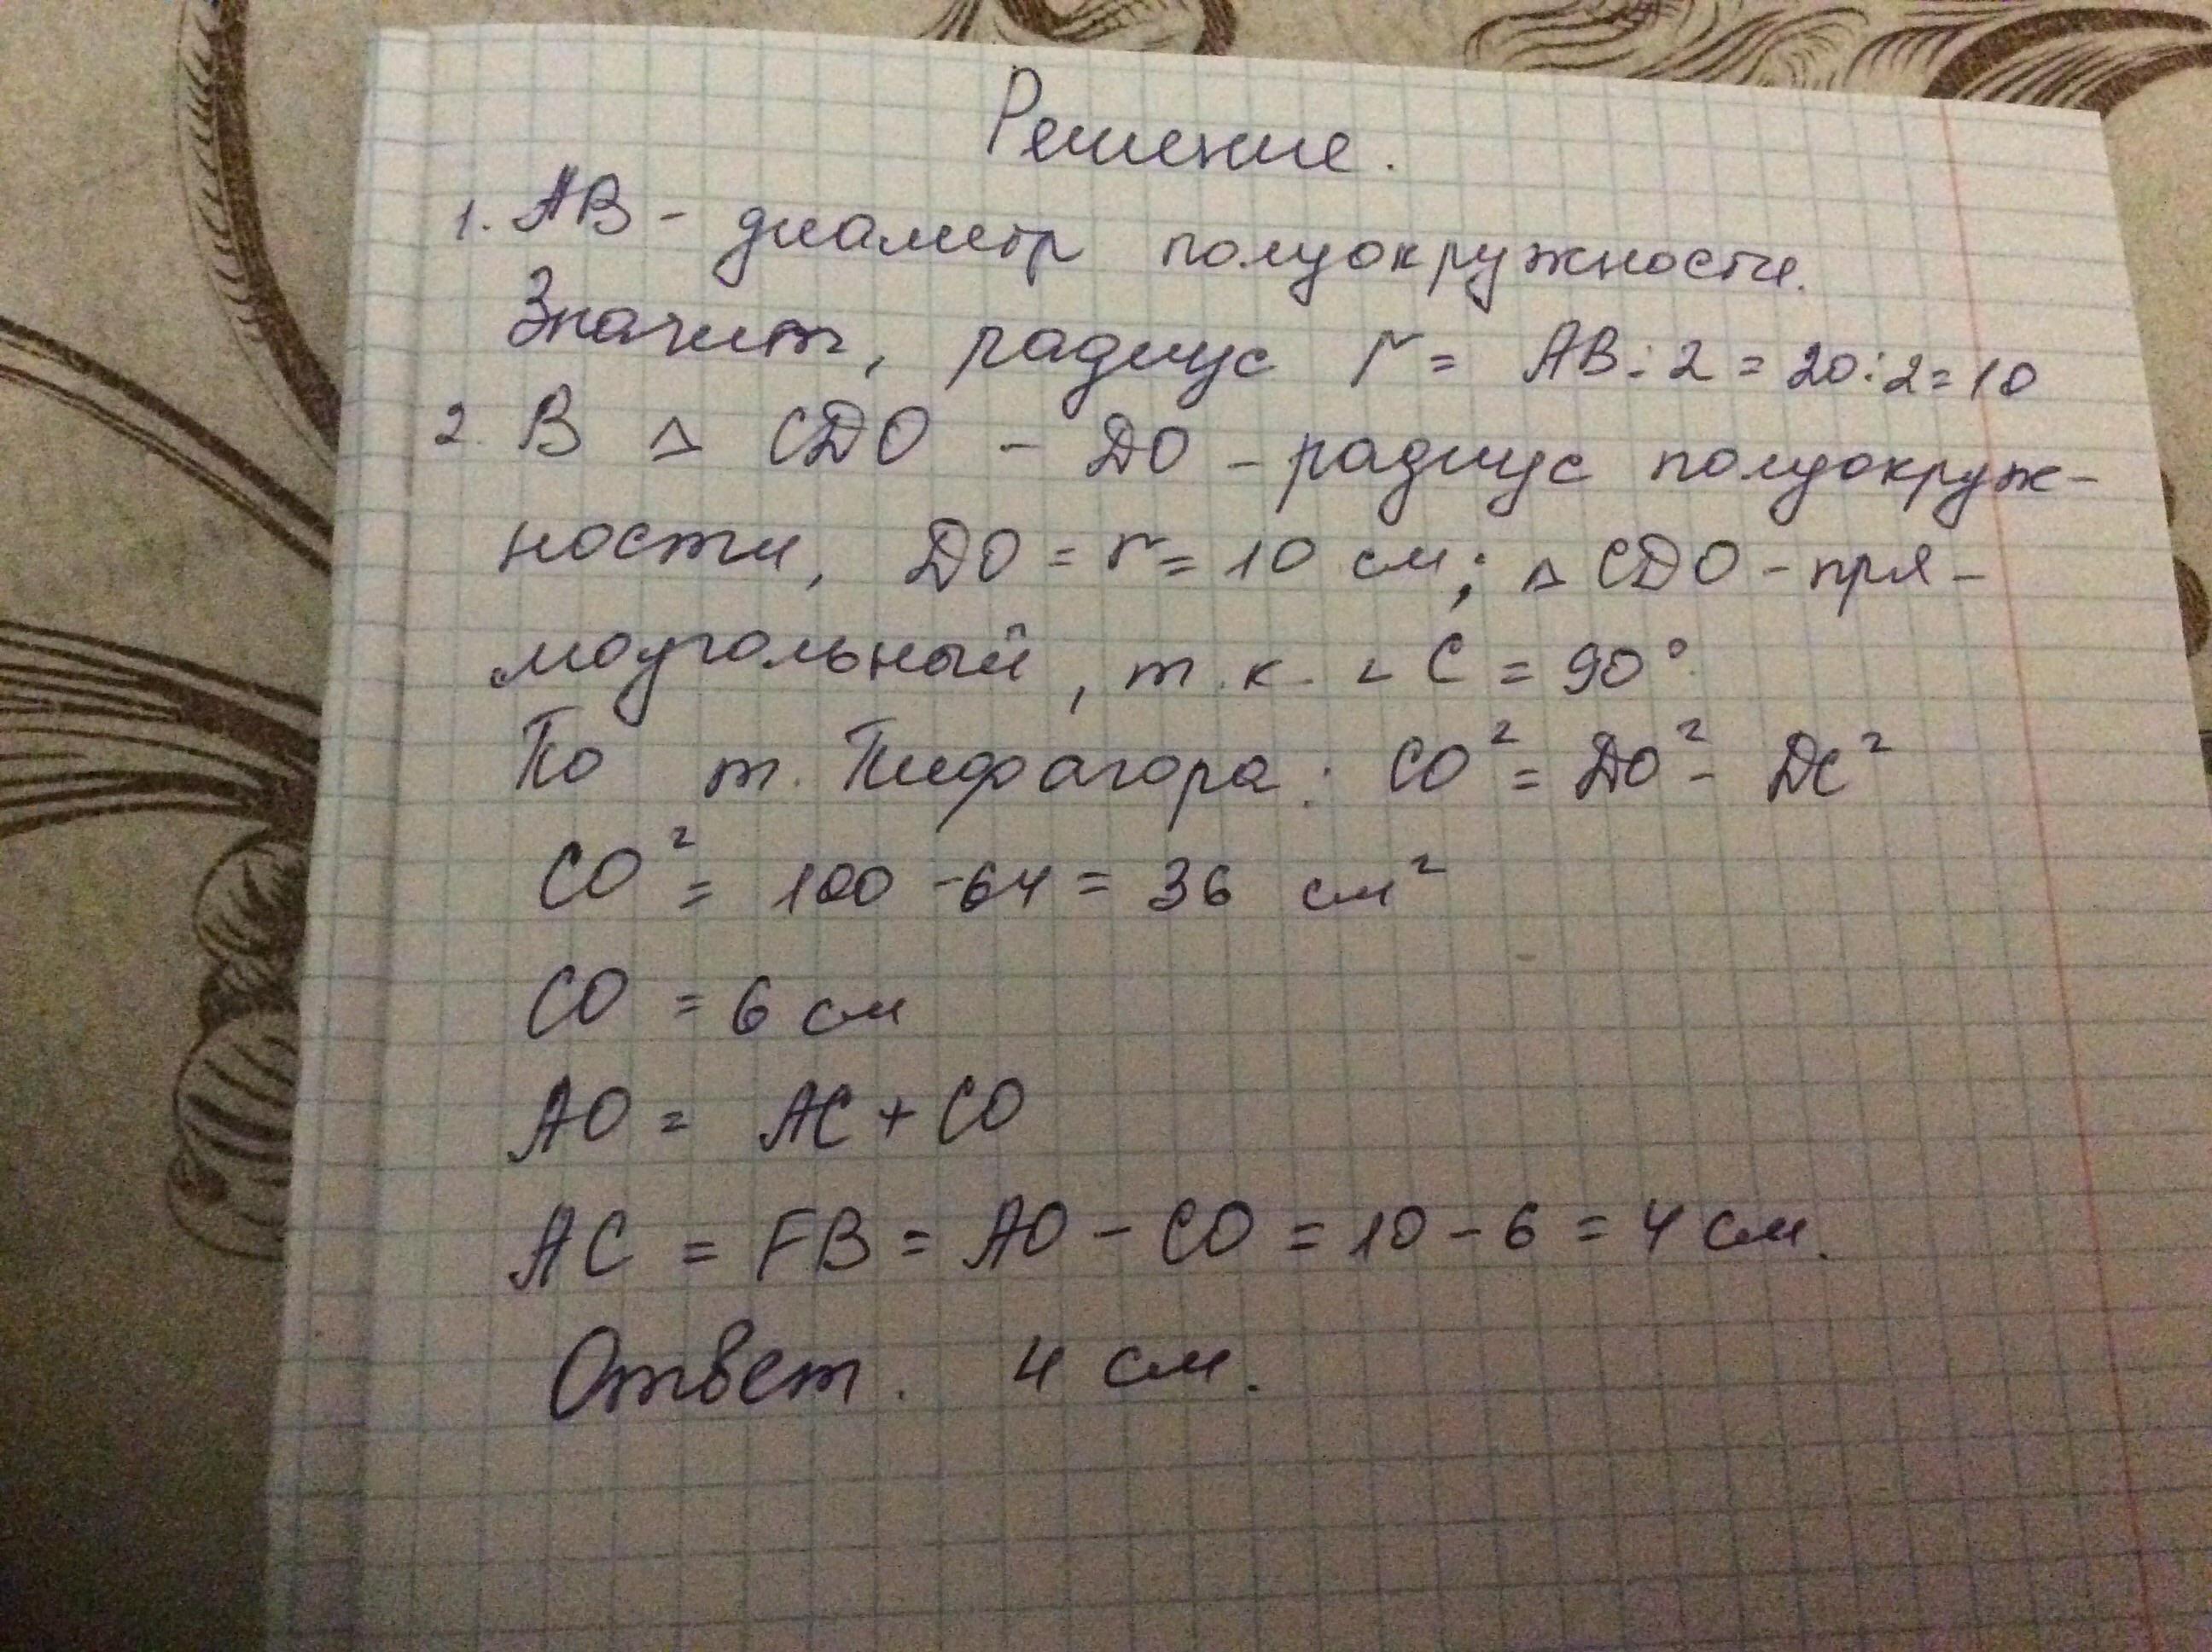 Решение.
1. AB - диаметр полуокружности.
Значит, радиус r = AB:2 = 20:2=10
2. В △ CDO - DO - радиус полуокруж-
ности, DO = r = 10 см; △ CDO - пря-
моугольный, т.к. ∠ C = 90°
По т. Пифагора: CO² = DO² - DC²
CO² = 100 - 64 = 36 см²
CO = 6 см
AO = AC + CO
AC = FB = AO - CO = 10 - 6 = 4 см.
Ответ. 4 см.